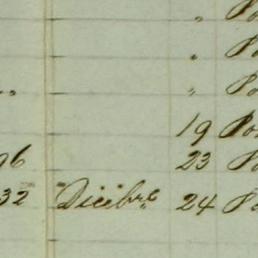 " Po
" Po
" Po
19 Po
96 23 Po
32 Dicibre 24 Po